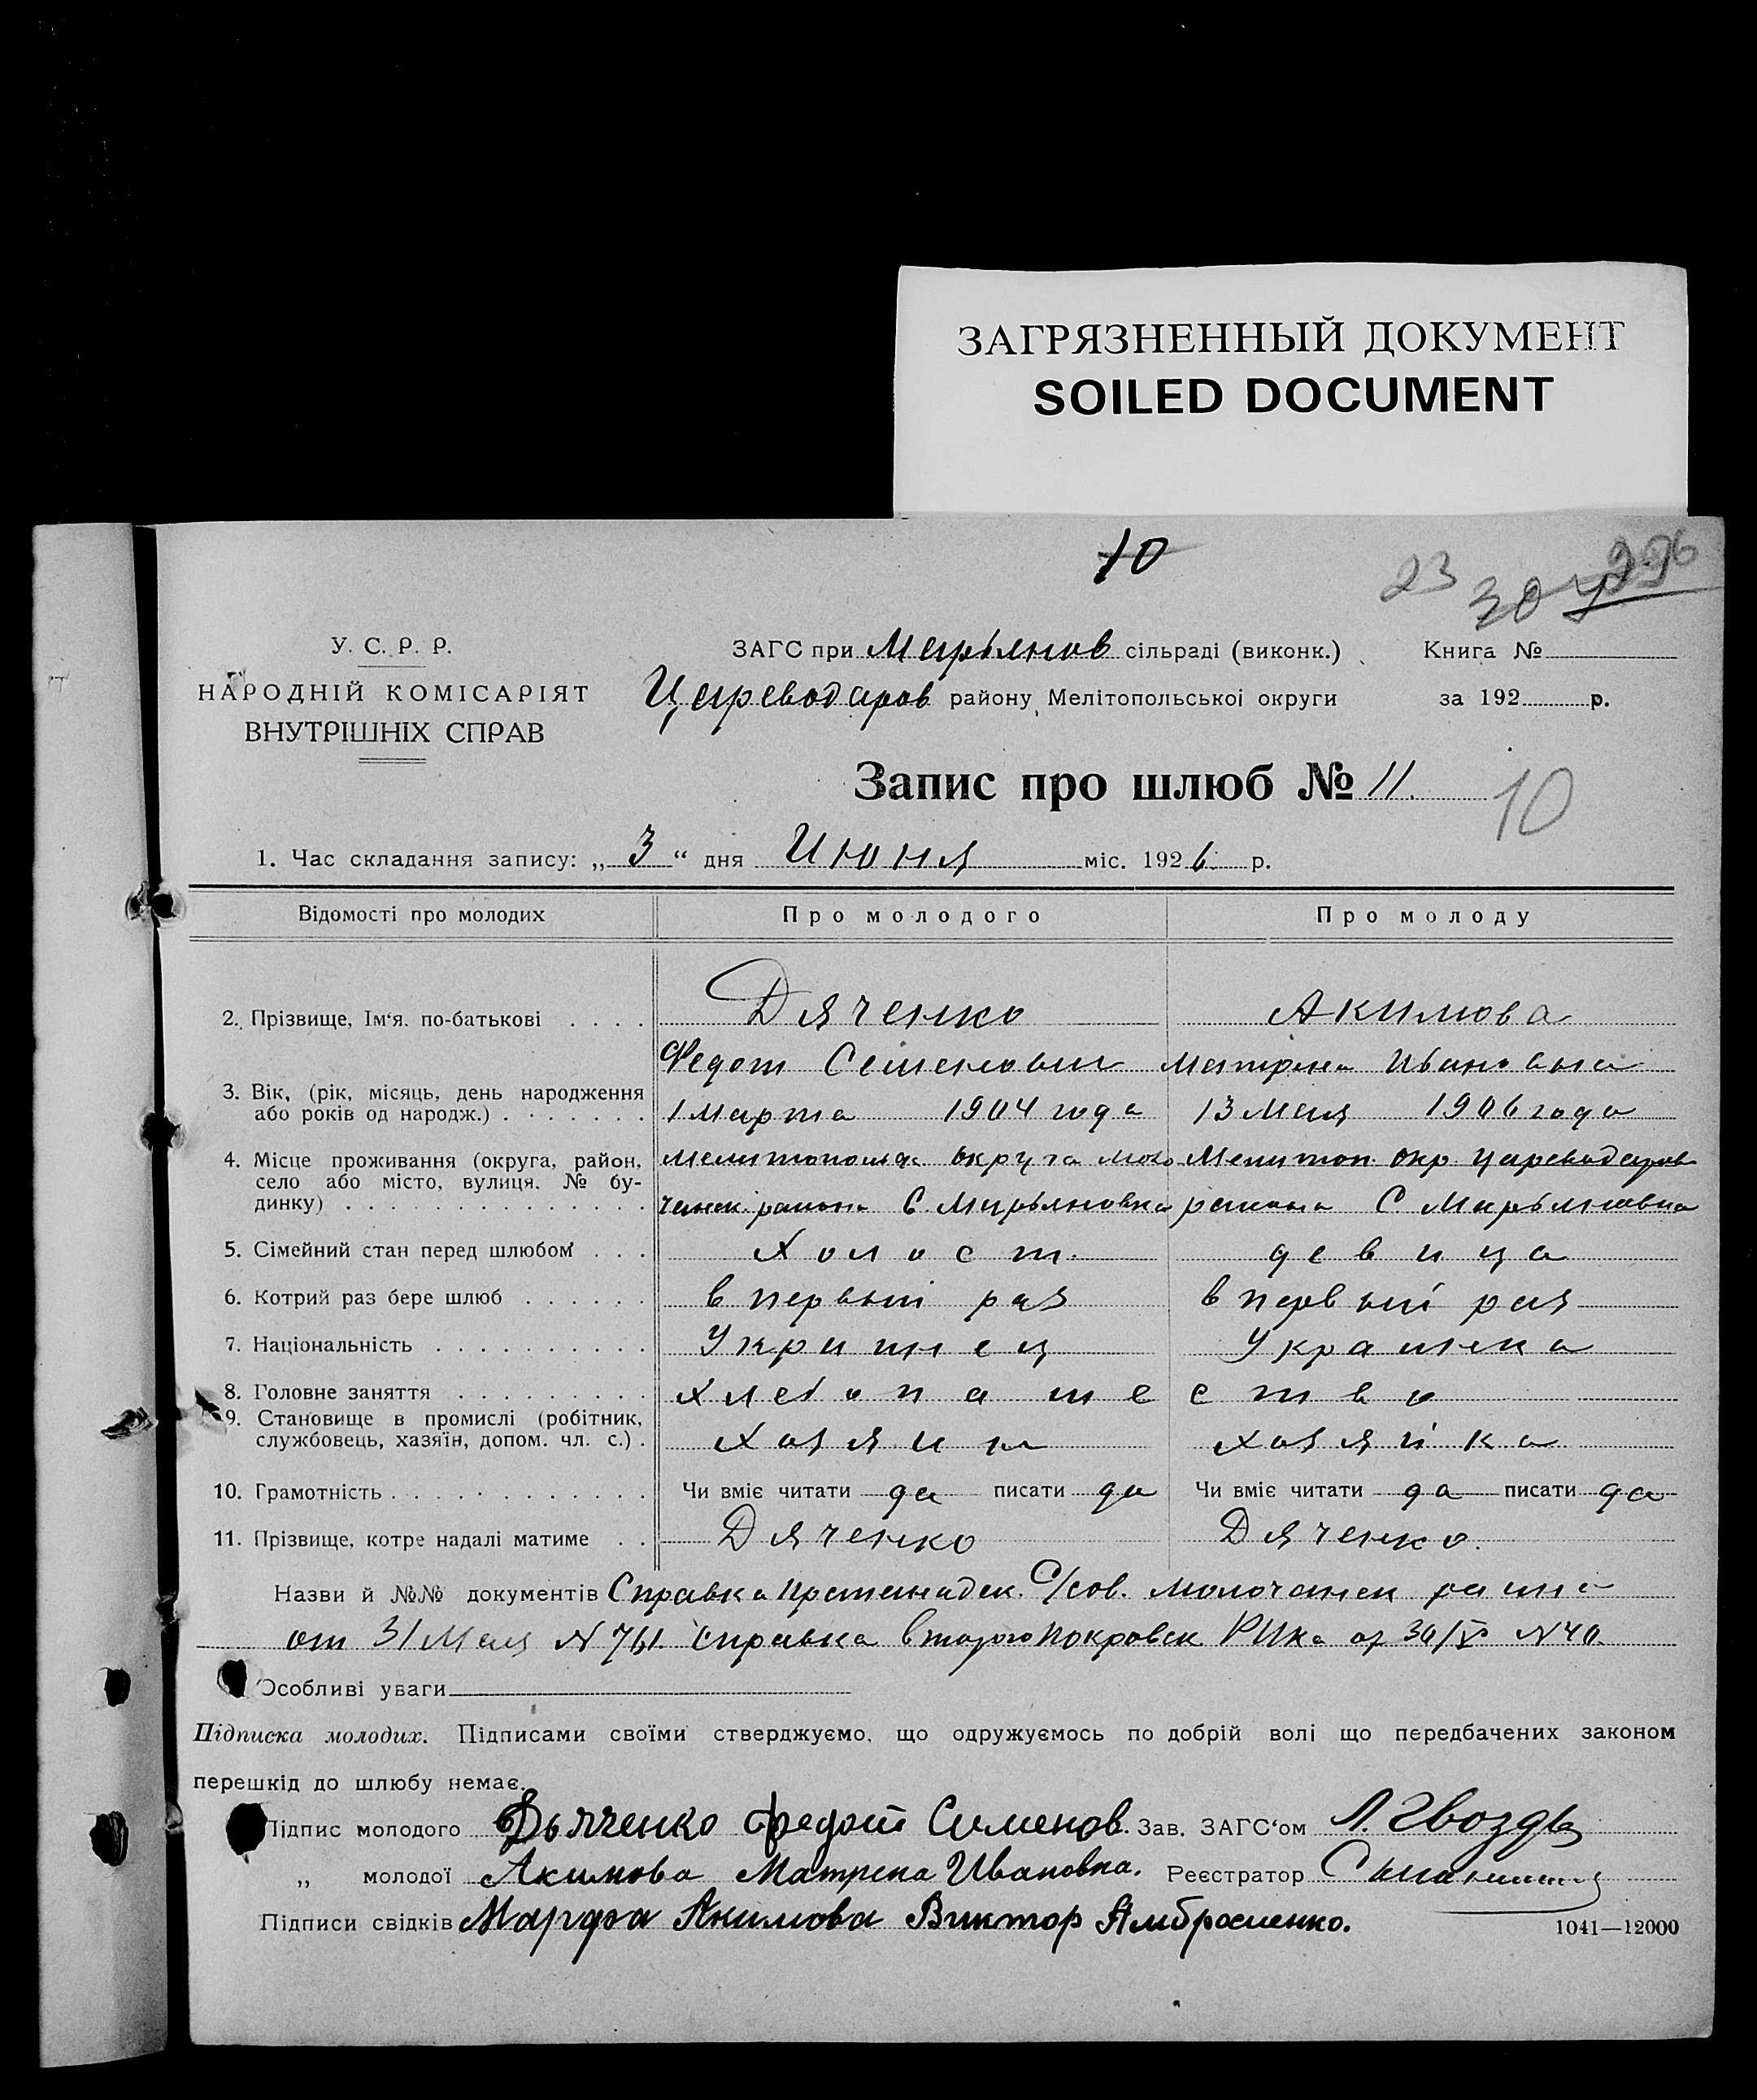 ЗАГРЯЗНЕННЫЙ ДОКУМЕНТ
SOILED DOCUMENT
10
23 30
У. С. Р. Р.
НАРОДНІЙ КОМІСАРІЯТ
ВНУТРІШНІХ СПРАВ
ЗАГС при Марьянов сільраді (виконк.)
Цареводаров району Мелітопольської округи
Книга №
за 192 р.
Запис про шлюб № 11.
10
1. Час складання запису: „ 3 “ дня Июня міс. 1926. р.
Відомості про молодих Про молодого Про молоду
2. Прізвище, Ім‘я. по-батькові Дяченко Акимова
Федот Семенович Матрена Ивановна
3. Вік, (рік, місяць, день народження або років од народж.) 1 Марта 1904 года 13 Мая 1906 года
4. Місце проживання (округа, район, село або місто, вулиця. № будинку)
округа Моло Мелитоп. окр. Цареводаров
чанск. района С. Марьяновка района С Марьяновка
5. Сімейний стан перед шлюбом Холост. девица
6. Котрий раз бере шлюб в первый раз в первый раз
7. Національність Украинец Украинка
8. Головне заняття хлебопашество
9. Становище в промислі (робітник, службовець, хазяїн, допом. чл. с.) хазяин хазяйка
10. Грамотність Чи вміє читати да писати да Чи вміє читати да писати да
11. Прізвище, котре надалі матиме Дяченко Дяченко.
Назви й №№ документів Справка С/сов. Молочанск
от 31 Мая N 761. Справка Второпокровск РИКа от 30/V N 40.
Особливі уваги
Підписка молодих. Підписами своїми стверджуємо, що одружуємось по добрій волі що передбачених законом
перешкід до шлюбу немає.
Підпис молодого Дьяченко Федот Семенов. Зав. ЗАГС‘ом Л. Гвоздь
„ молодої Акимова Матрена Ивановна. Реєстратор
Підписи свідків Марфа Акимова Виктор Амбросиенко.
1041—12000